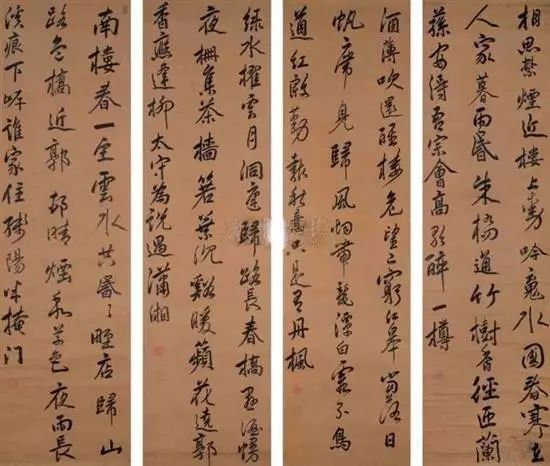 相思禁煙近樓上動吟魂水國春寒在
人家暮雨昏朱橋通竹樹香徑匝蘭
蓀安得吾宗會高歌醉一樽
酒薄吹還醒樓危望已窮江皋當落日
帆席見歸風煙帶龍潭白霞分鳥
道紅殷勤報秋意只是有丹楓
綠水櫂雲月洞庭歸路長春橋垂酒幔
夜柵集茶檣箬葉沉溪暖蘋花遠郭
香應逢柳太守為說過瀟湘
南樓春一望雲水共昏昏野店歸山
路危橋近郭村晴煙和草色夜雨長
溪痕下岸誰家住殘陽半掩門